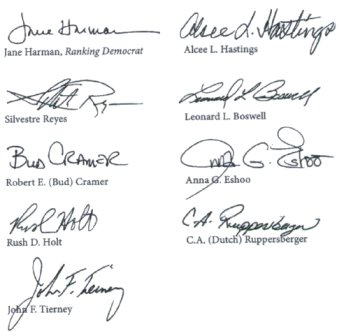 Jane Harman
Jane Harman, Ranking Democrat
Alcee L. Hastings
Alcee L. Hastings
Silvestre Reyes
Leonard L. Boswell
Leonard L. Boswell
Bud Cramer
Robert E. (Bud) Cramer
Anna G. Eshoo
Anna G. Eshoo
Rush Holt
Rush D. Holt
C.A. Ruppersberger
C.A. (Dutch) Ruppersberger
John F. Tierney
John F. Tierney